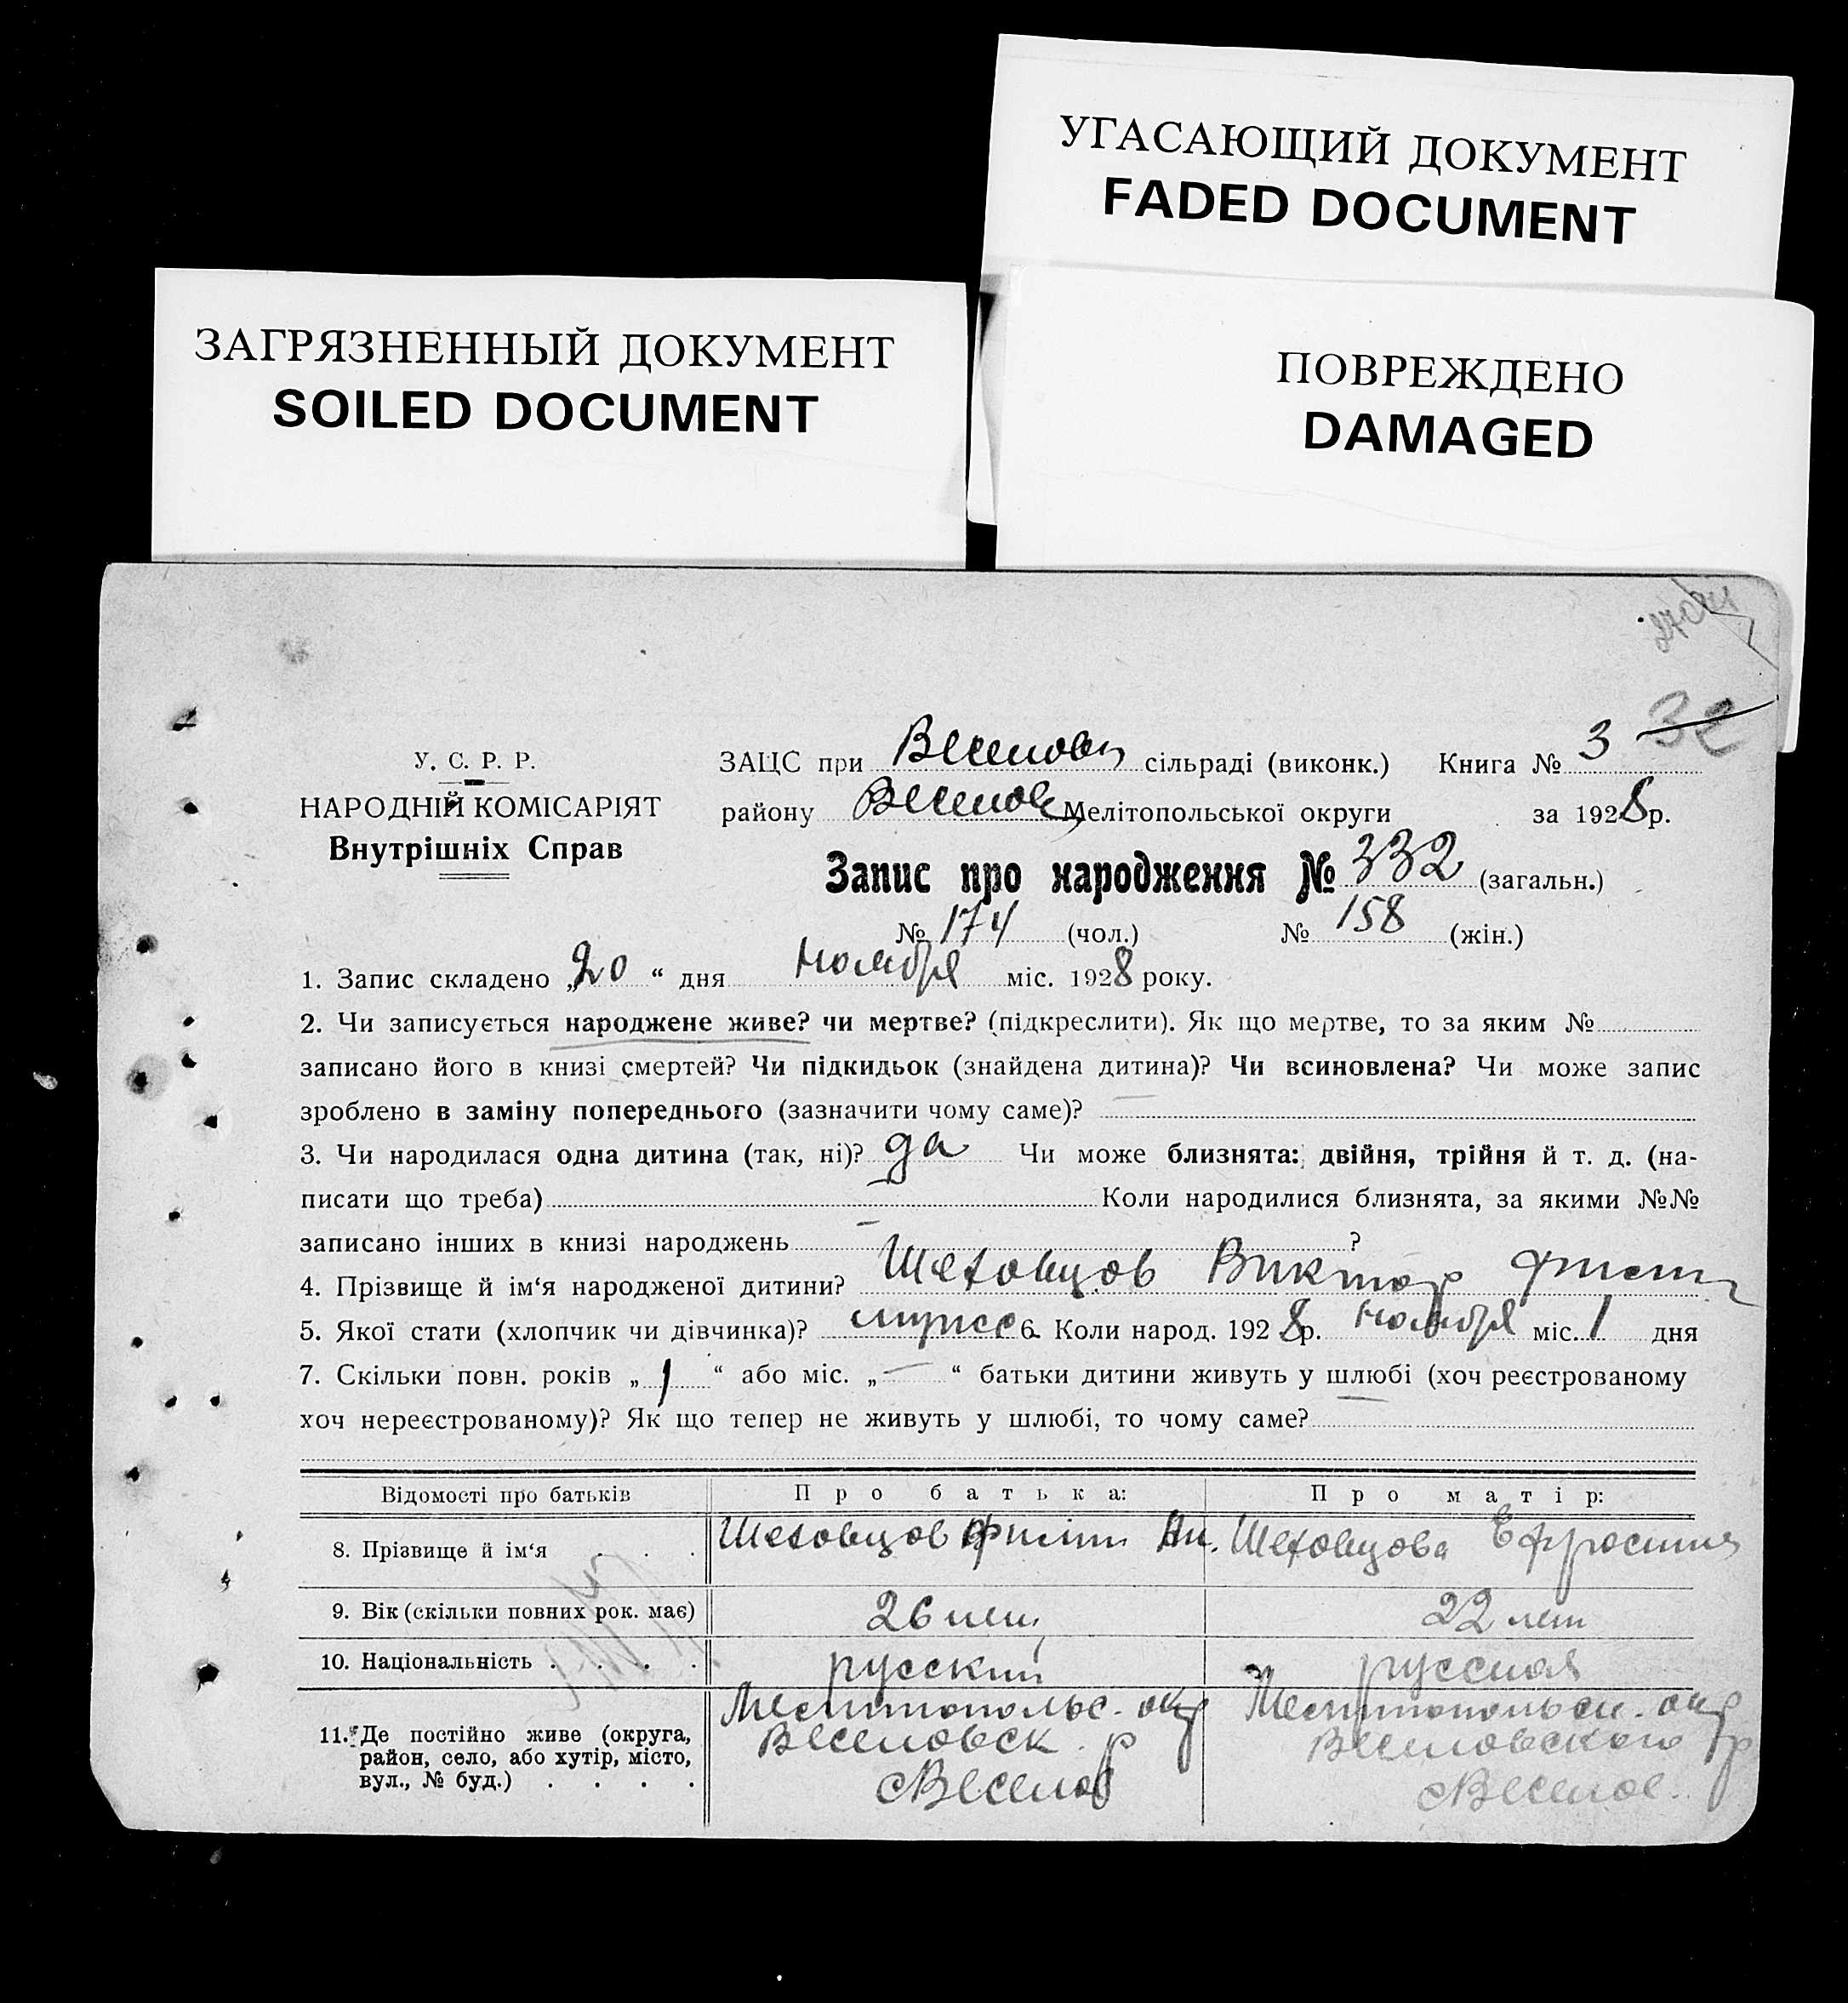 УГАСАЮЩИЙ ДОКУМЕНТ
FADED DOCUMENT
ЗАГРЯЗНЕННЫЙ ДОКУМЕНТ
SOILED DOCUMENT
ПОВРЕЖДЕНО
DAMAGED
32
У. С. Р. Р.
НАРОДНІЙ КОМІСАРІЯТ
Внутрішніх Справ
ЗАЦС при Веселовск сільраді (виконк.) Книга № 3
району Веселов Мелітопольської округи за 1928 р.
Запис про народження № 332 (загальн.)
№ 174 (чол.) № 158 (жін.)
1. Запис складено „20“ дня ноября міс. 1928 року.
2. Чи записується народжене живе? чи мертве? (підкреслити). Як що мертве, то за яким №
записано його в книзі смертей? Чи підкидьок (знайдена дитина)? Чи всиновлена? Чи може запис
зроблено в заміну попереднього (зазначити чому саме)? —
3. Чи народилася одна дитина (так, ні)? да Чи може близнята: двійня, трійня й т. д. (на-
писати що треба) — Коли народилися близнята, за якими №№
записано інших в книзі народжень — ?
4. Прізвище й ім‘я народженої дитини? Шеховцов Виктор Филип
5. Якої стати (хлопчик чи дівчинка)? мужск 6. Коли народ. 1928 р. Ноября міс. 1 дня
7. Скільки повн. років „1“ або міс. „—“ батьки дитини живуть у шлюбі (хоч реєстрованому
хоч нереєстрованому)? Як що тепер не живуть у шлюбі, то чому саме?
Відомості про батьків Про батька: Про матір:
8. Прізвище й ім‘я . . . Шеховцов Филип Ан. Шеховцова Ефросиния
9. Вік (скільки повних рок. має) 26 лет 22 лет
10. Національність . . . . русский русская
11. Де постійно живе (округа, район, село, або хутір, місто, вул., № буд.) . . . .
Мелитопольс. окр
Веселовск. р
с Веселое
Мелитопольск. окр
Веселовского р
с Веселое.